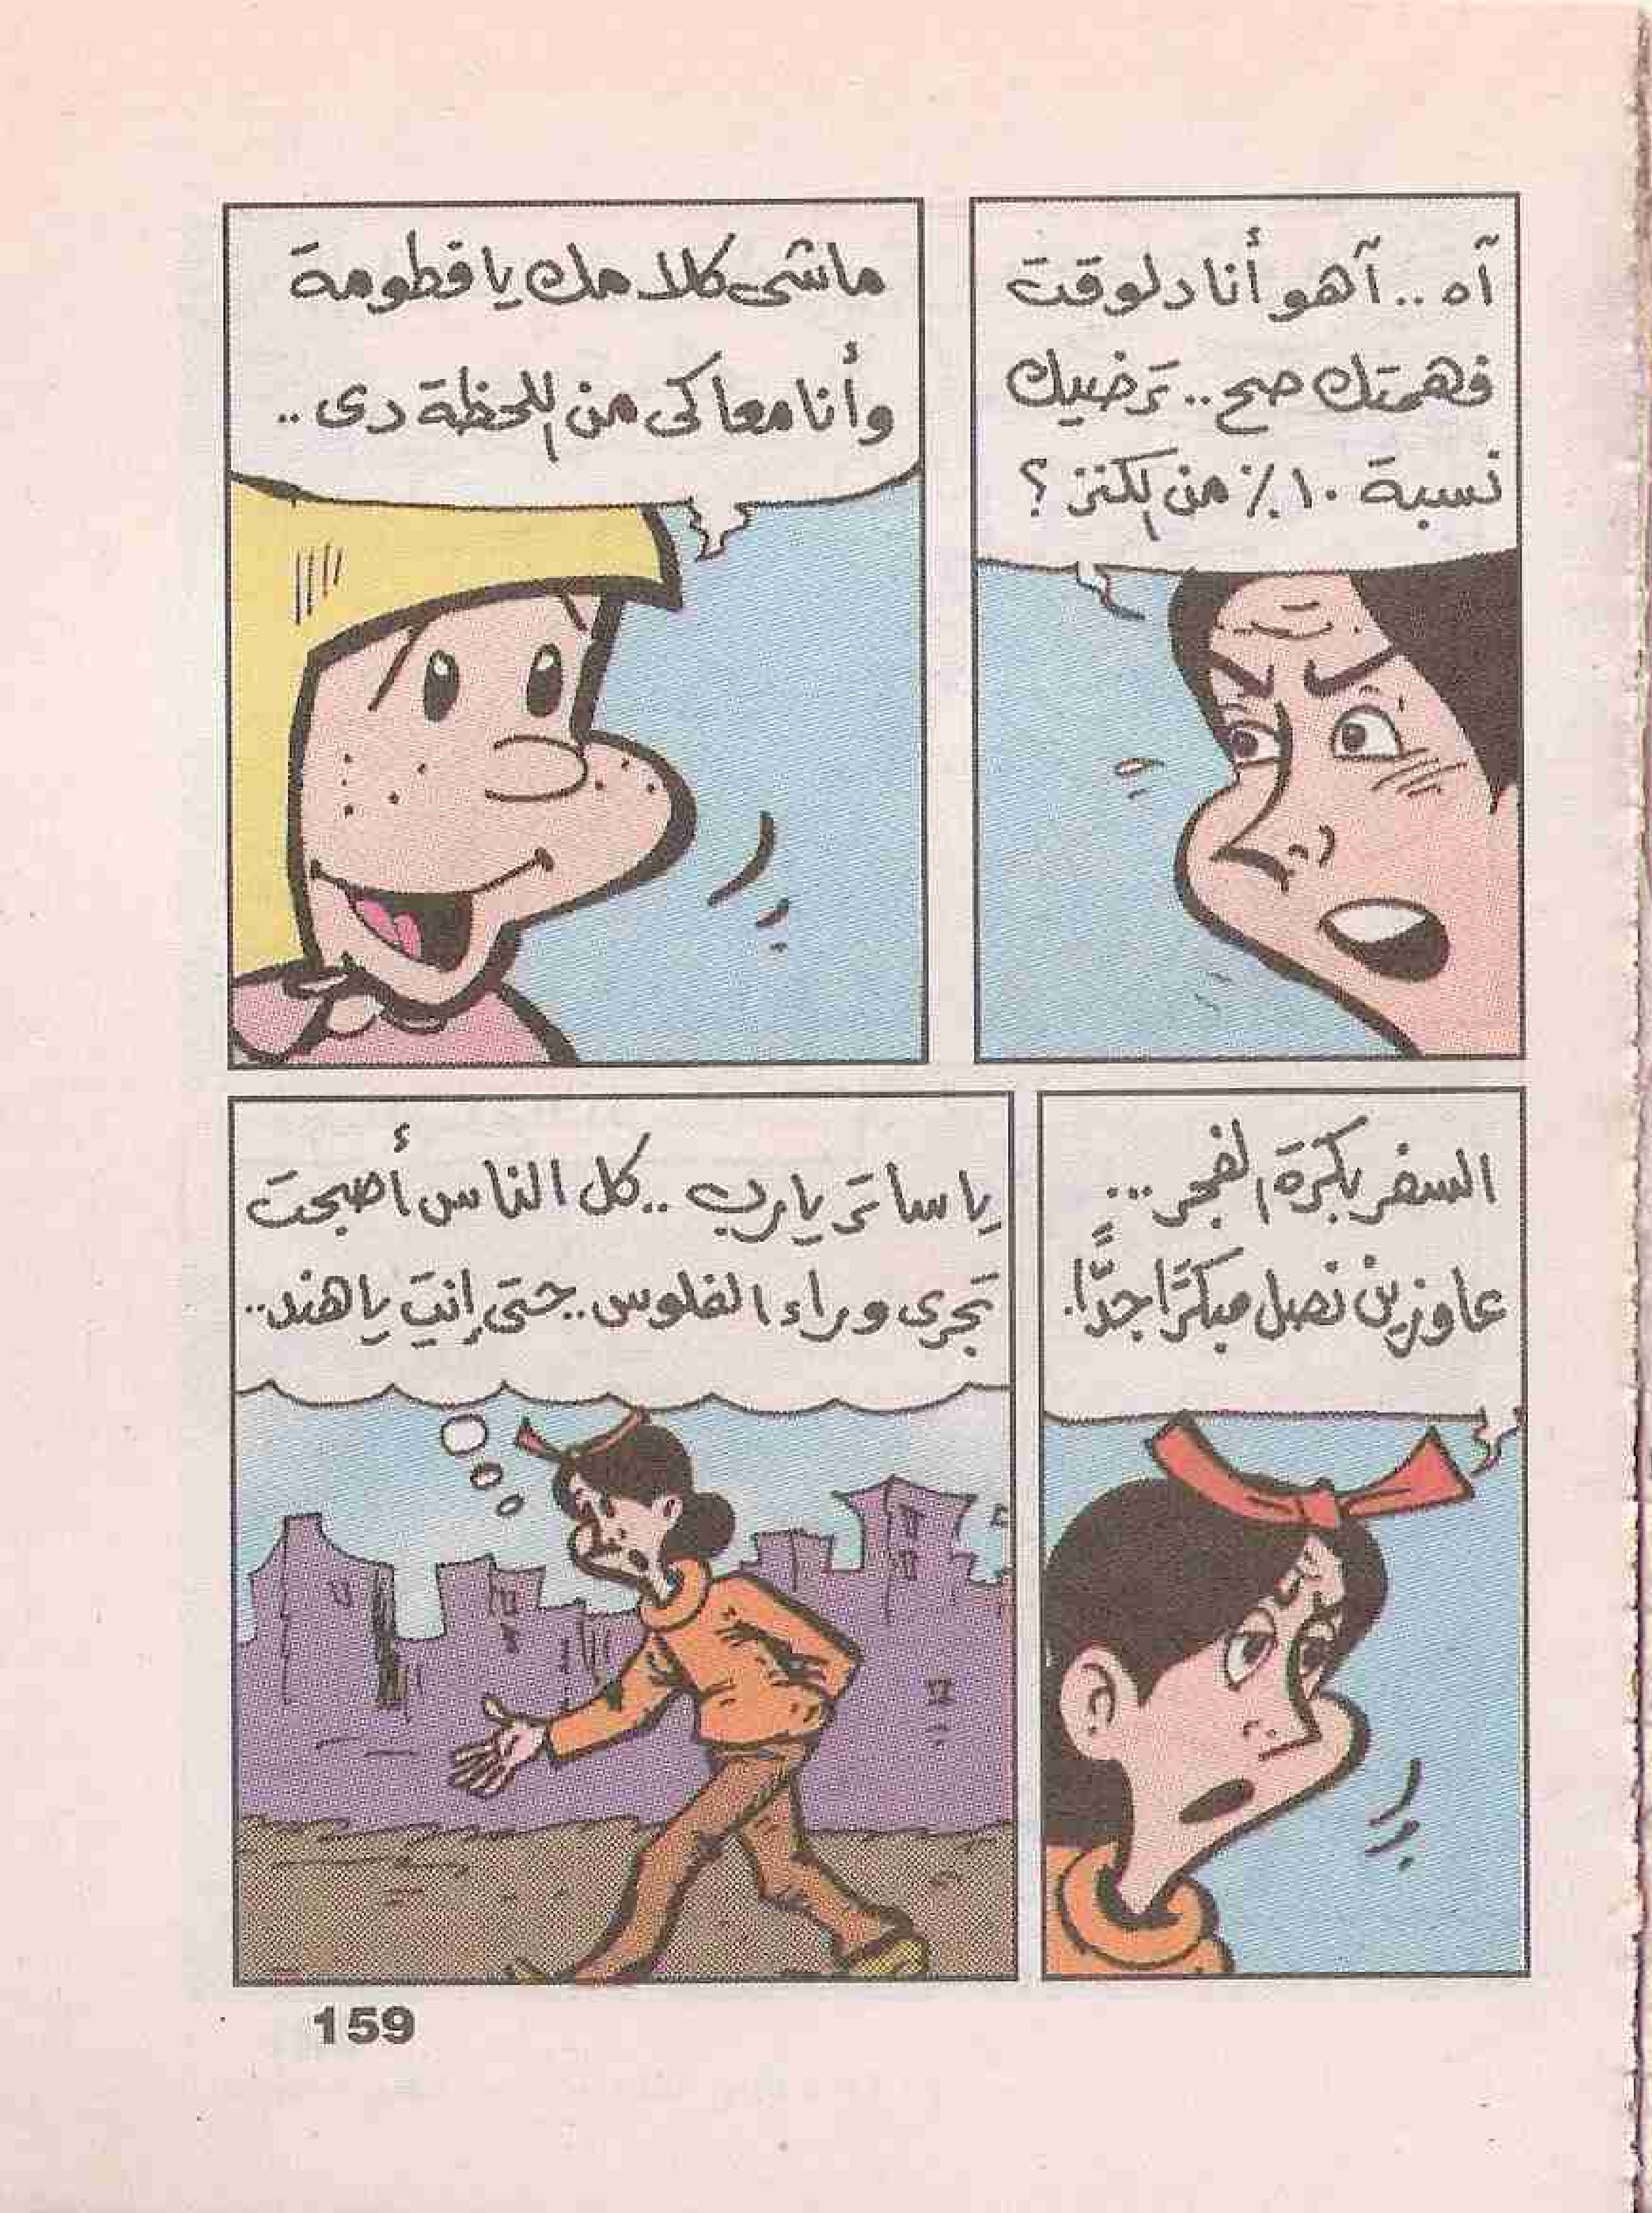 آه.. آهو أنا دلوقت
فهمتك صح.. ترضيك
نسبة ١٠٪ من الكنز؟
ماشى كلامك يا فطومة
وأنا معاكى من اللحظة دى..
السفر بكرة الفجر...
عاوزين نصل مبكرًا جدًّا.
يا ساتر يارب.. كل الناس أصبحت
تجرى وراء الفلوس.. حتى إنتِ يا هند..
159